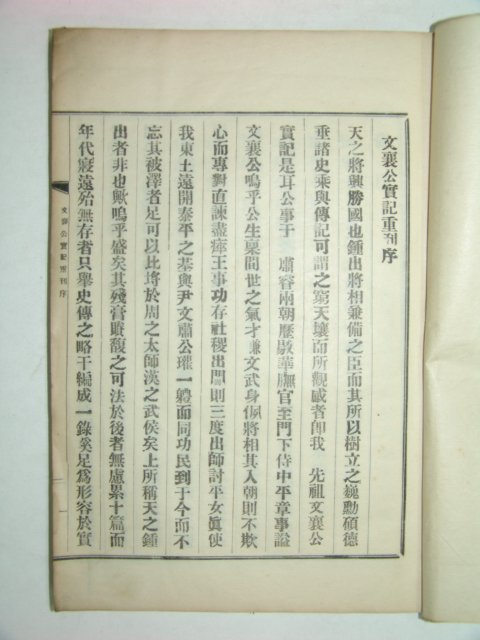 文襄公實記重刊序
天之將興勝國也鍾出將相兼備之臣而其所以樹立之巍勳碩德
垂諸史乘與傳記可謂之窮天壤而所觀感者卽我 先祖文襄公
實記是耳公事于 肅睿兩朝歷敭華膴官至門下侍中平章事諡
文襄公嗚乎公生稟間世之氣才兼文武身佩將相其入朝則不欺
心而專對直諫盡瘁王事功存社稷出閫則三度出師討平女眞使
我東土遠開泰平之基與尹文肅公瓘一體而同功民到于今而不
忘其被澤者足可以比將於周之太師漢之武侯矣上所稱天之鍾
出者非也歟嗚乎盛矣其殘膏賸馥之可法於後者無慮累十篇而
年代寢遠殆無存者只擧史傳之略干編成一錄奚足爲形容於實
文襄公實記重刊序